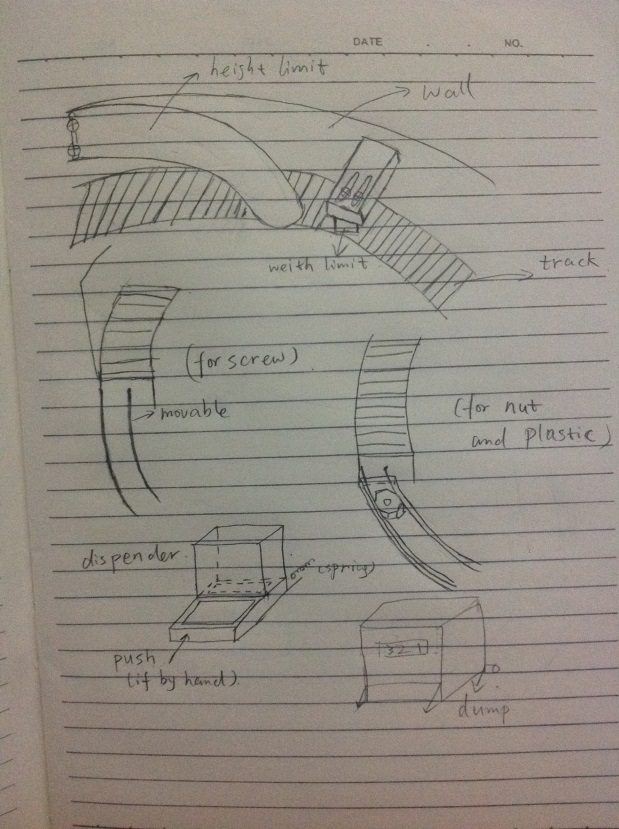 DATE . . NO.
height limit
wall
weith limit
track
(for screw)
movable
(for nut
and plastic)
dispender
(spring)
push
(if by hand).
321
dump